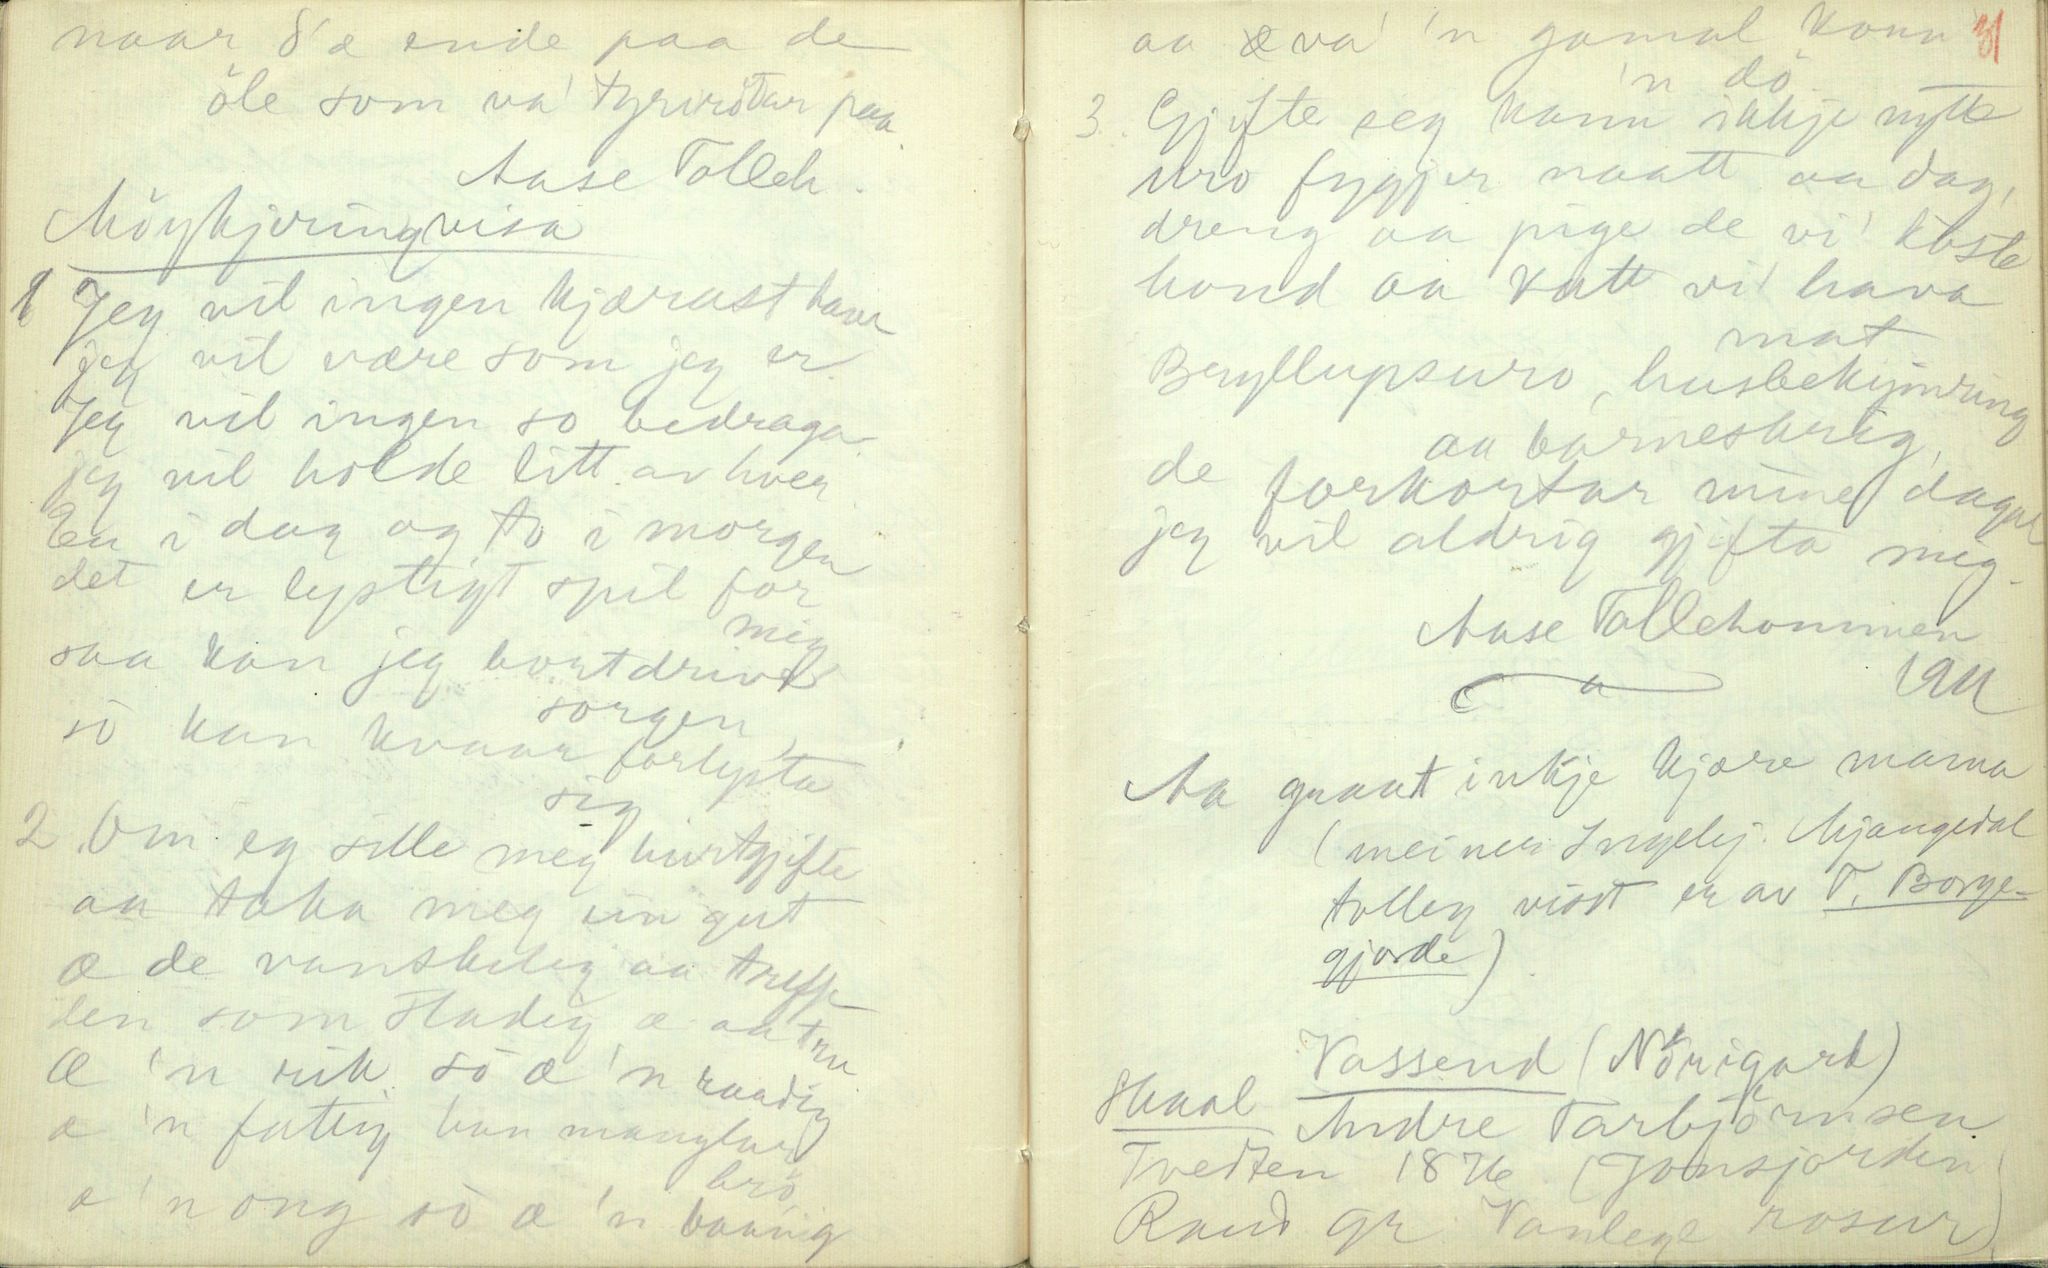 naar d'æ ende paa de
öle som va' tyrirötar paa.
Aase Tolleh.
Möykjeringvisa
1 Jeg vil ingen kjærast have
jeg vil være som jeg er.
Jeg vil ingen so bedraga
jeg vil holde litt av hver
En i dag og to i morgen
det er lystigt spil for
mig
saa kan jeg bortdrive
sorgen,
sö kan kvaar forlysta
sig
2 Om eg sille meg burtgjifte
aa taka meg ein gut
æ de vanskelig aa treffe
den som stadig æ aa tru
Æ 'n rik sö æ 'n raadig
æ 'n fattig han manglar
brö
æ 'n ong sö æ 'n baanig
aa æ va' 'n gamal kann 31
'n dö
3. Gjifte seg kann ikkje nytte
uro fyggjer naatt aa dag,
dreng aa pige de vi' koste
hond aa katt vi' hava
mat
Bryllupsuro, husbekymring
aa barneskrig,
de forkortar mine dagar
jeg vil aldrig gjifta mig.
Aase Tollehommen
1911
Aa graat inkje kjære mamma
(meiner Ingebj. Mjaugedal
tolleg visst er av T. Borge-
gjorde)
Vassend (Nörigard)
Skaal Andre Tarbjörnsen
Tvedten 1876 (Jonsjorden)
Raud gr. Vanlege rosur)